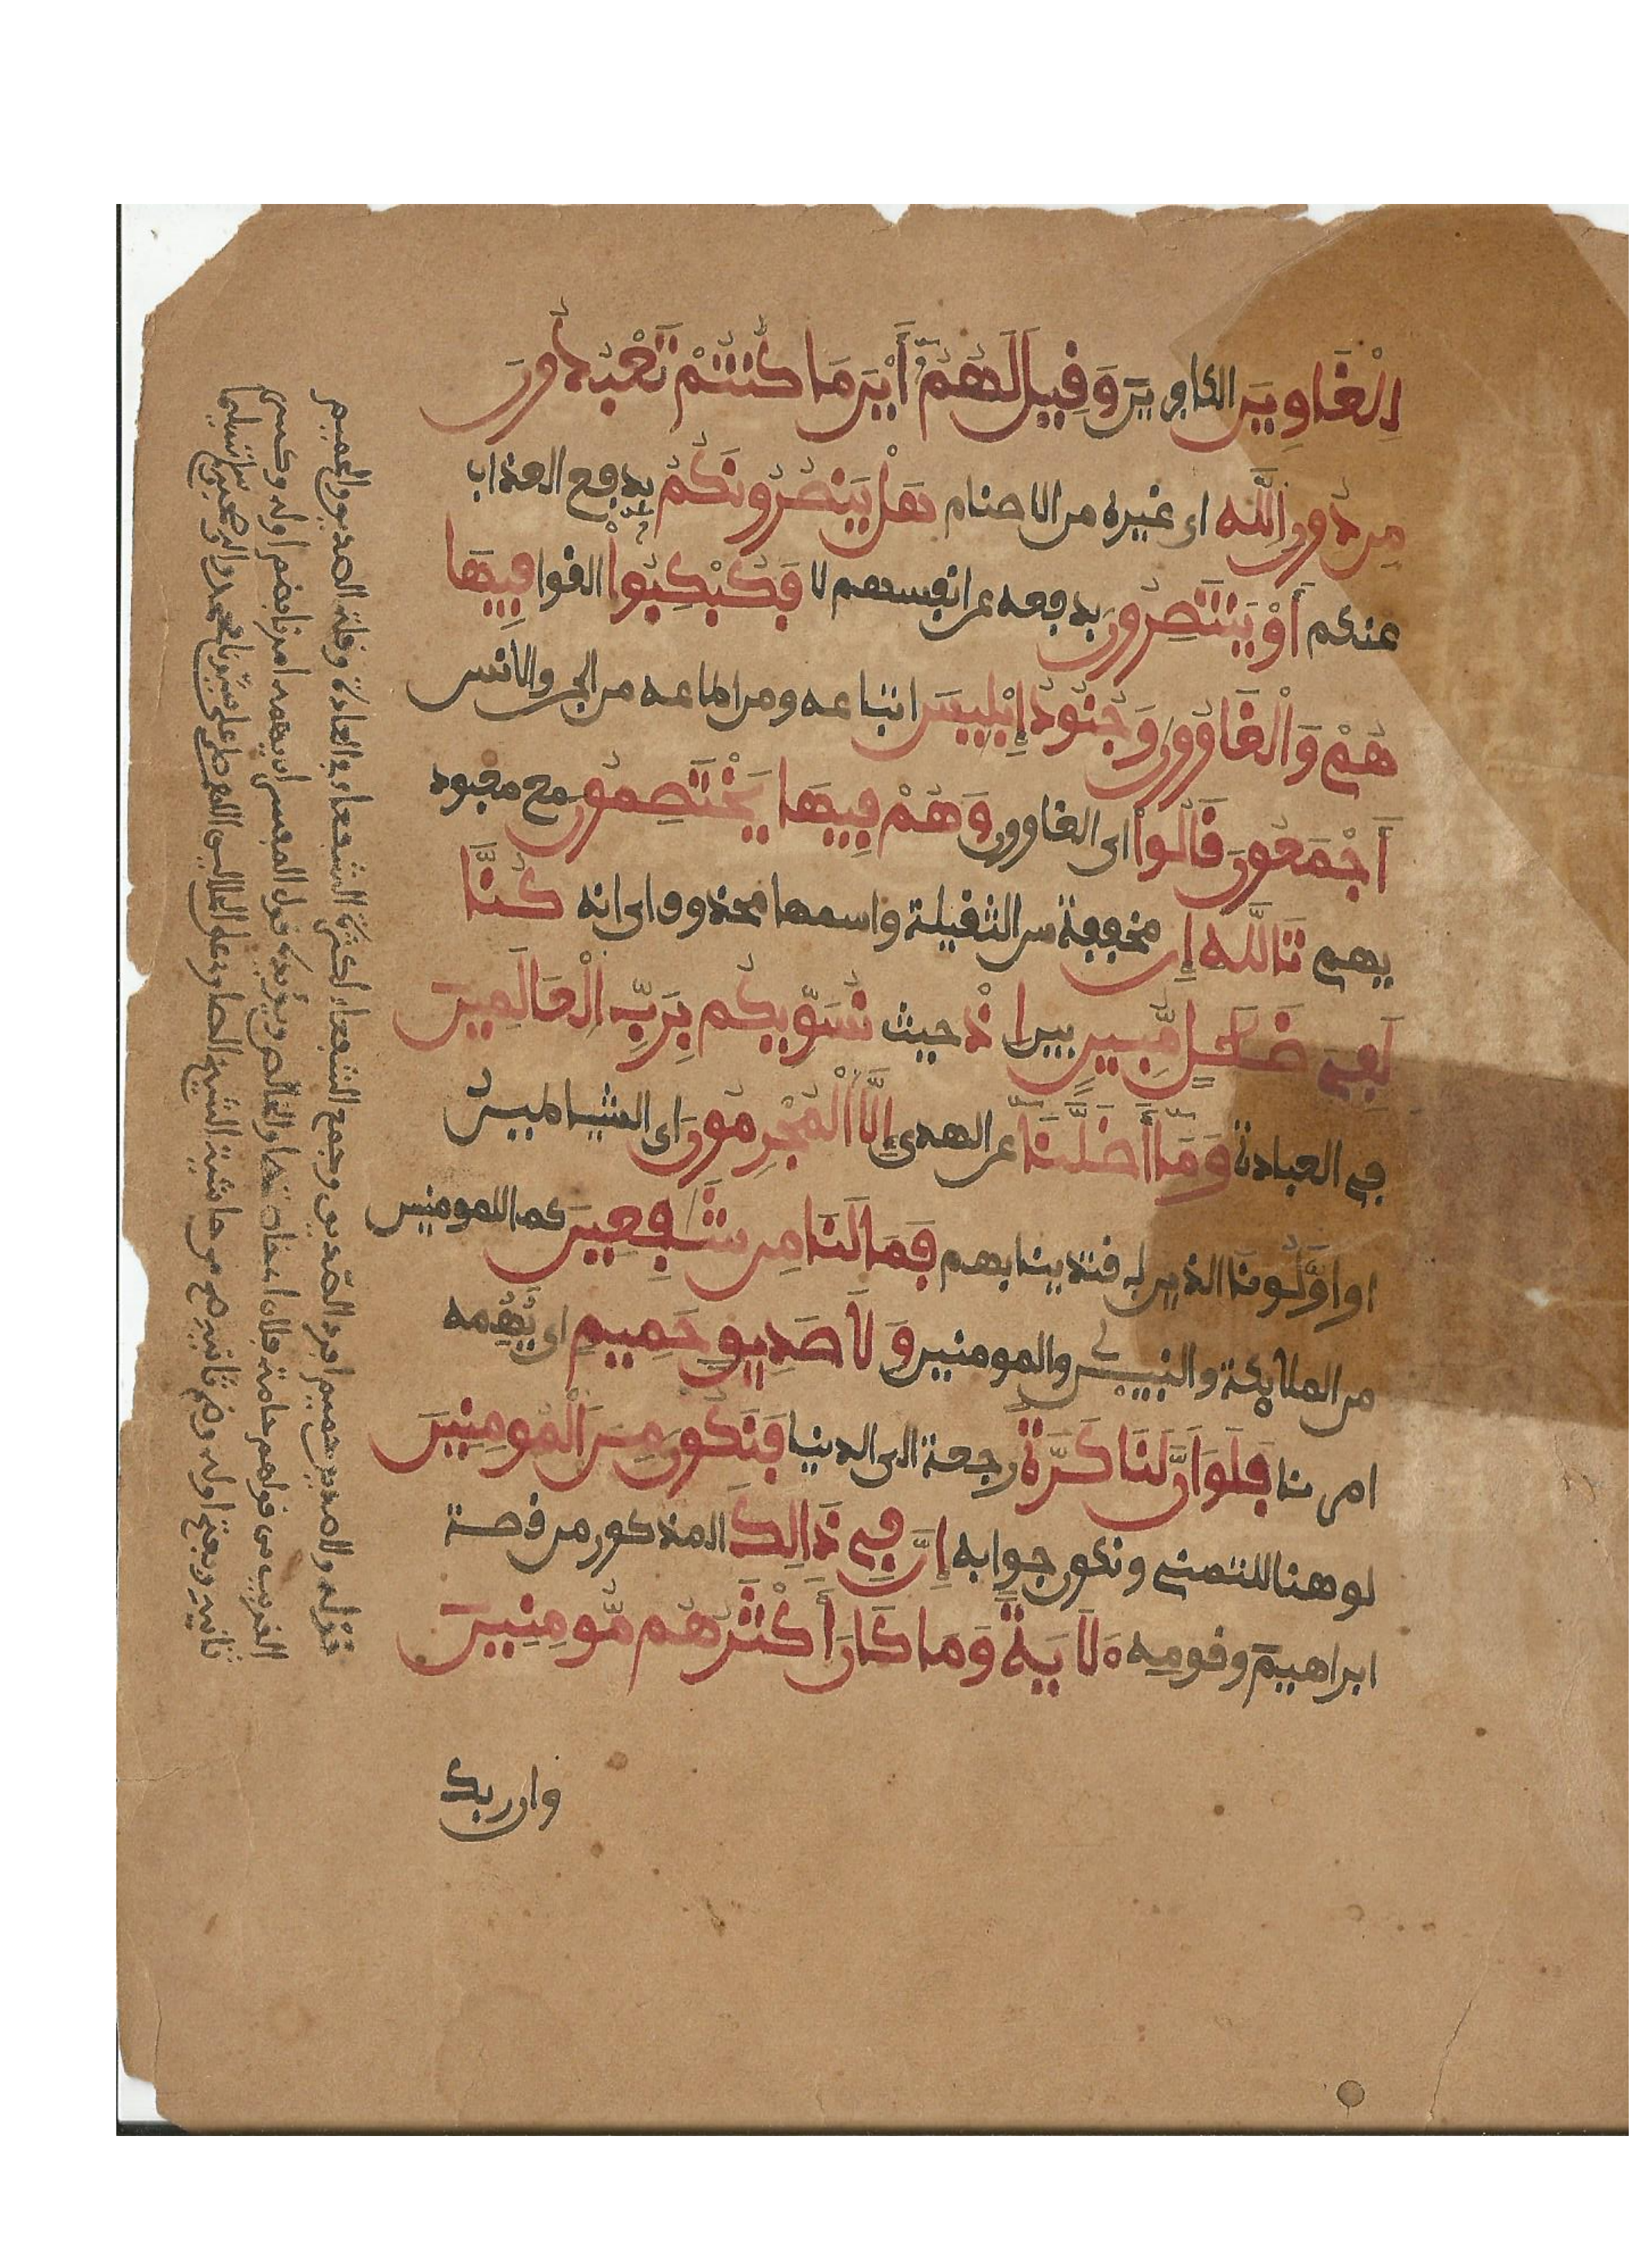 لِلْغَاوِينَ الكافرين وَقِيلَ لَهُمُۥٓ أَيْنَ مَا كُنتُمْ تَعْبُدُونَ
مِن دُونِ اِللَّهِ اى غيره من الاصنام هَلْ يَنصُرُونَكُمْ بدفع العذاب
عنكم أَوْ يَنتَصِرُونَ بدفعه عن انفسهم لا فَكُبْكِبُواْ القوا فِيهَا
هُمْ وَالْغَاوُونَ وَجُنُودُ إِبْلِيسَ اتباعه ومن اطاعه من الجن والانس
أَجْمَعُونَ قَالُواْ اى الغاوون وَهُمْ فِيهَا يَخْتَصِمُونَ مع معبود
يهم تَاللَّهِ إِن مخففة من الثقيلة واسمها محذوف اى انه كُنَّا
لَفِى ضَلَٰلٍ مُّبِينٍ بين اِذْ حيث نُسَوِّيكُم بِرَبِّ اِلْعَالَمِينَ
فى العبادة وَمَآ أَضَلَّنَآ عن الهدى إِلَّا اَلْمُجْرِمُونَ اى الشياطين
او اوَّلُونَا الذين اقتدينا بهم فَمَا لَنَا مِن شَٰفِعِينَ كما للمومنين
من الملايكة والنبيين والمومنين وَلَا صَدِيقٍ حَمِيمٍ اى يُهِمه
امرنا فَلَوَ اَنَّ لَنَا كَرَّةً رجعة الى الدنيا فَنَكُونَ مِنَ اَلْمُومِنِينَ
لو هنا للتمنى ونكون جوابه إِنَّ فِى ذَالِكَ المذكور من قصة
ابراهيم وقومه ءَلَايَةً وَمَا كَانَ أَكْثَرُهُم مُّومِنِينَ
وان ربك
قوله ولا صديق حميم افرد الصديق وجمع الشفعاء لكثرة الشفعاء فى العادة وقلة الصديق والحميم